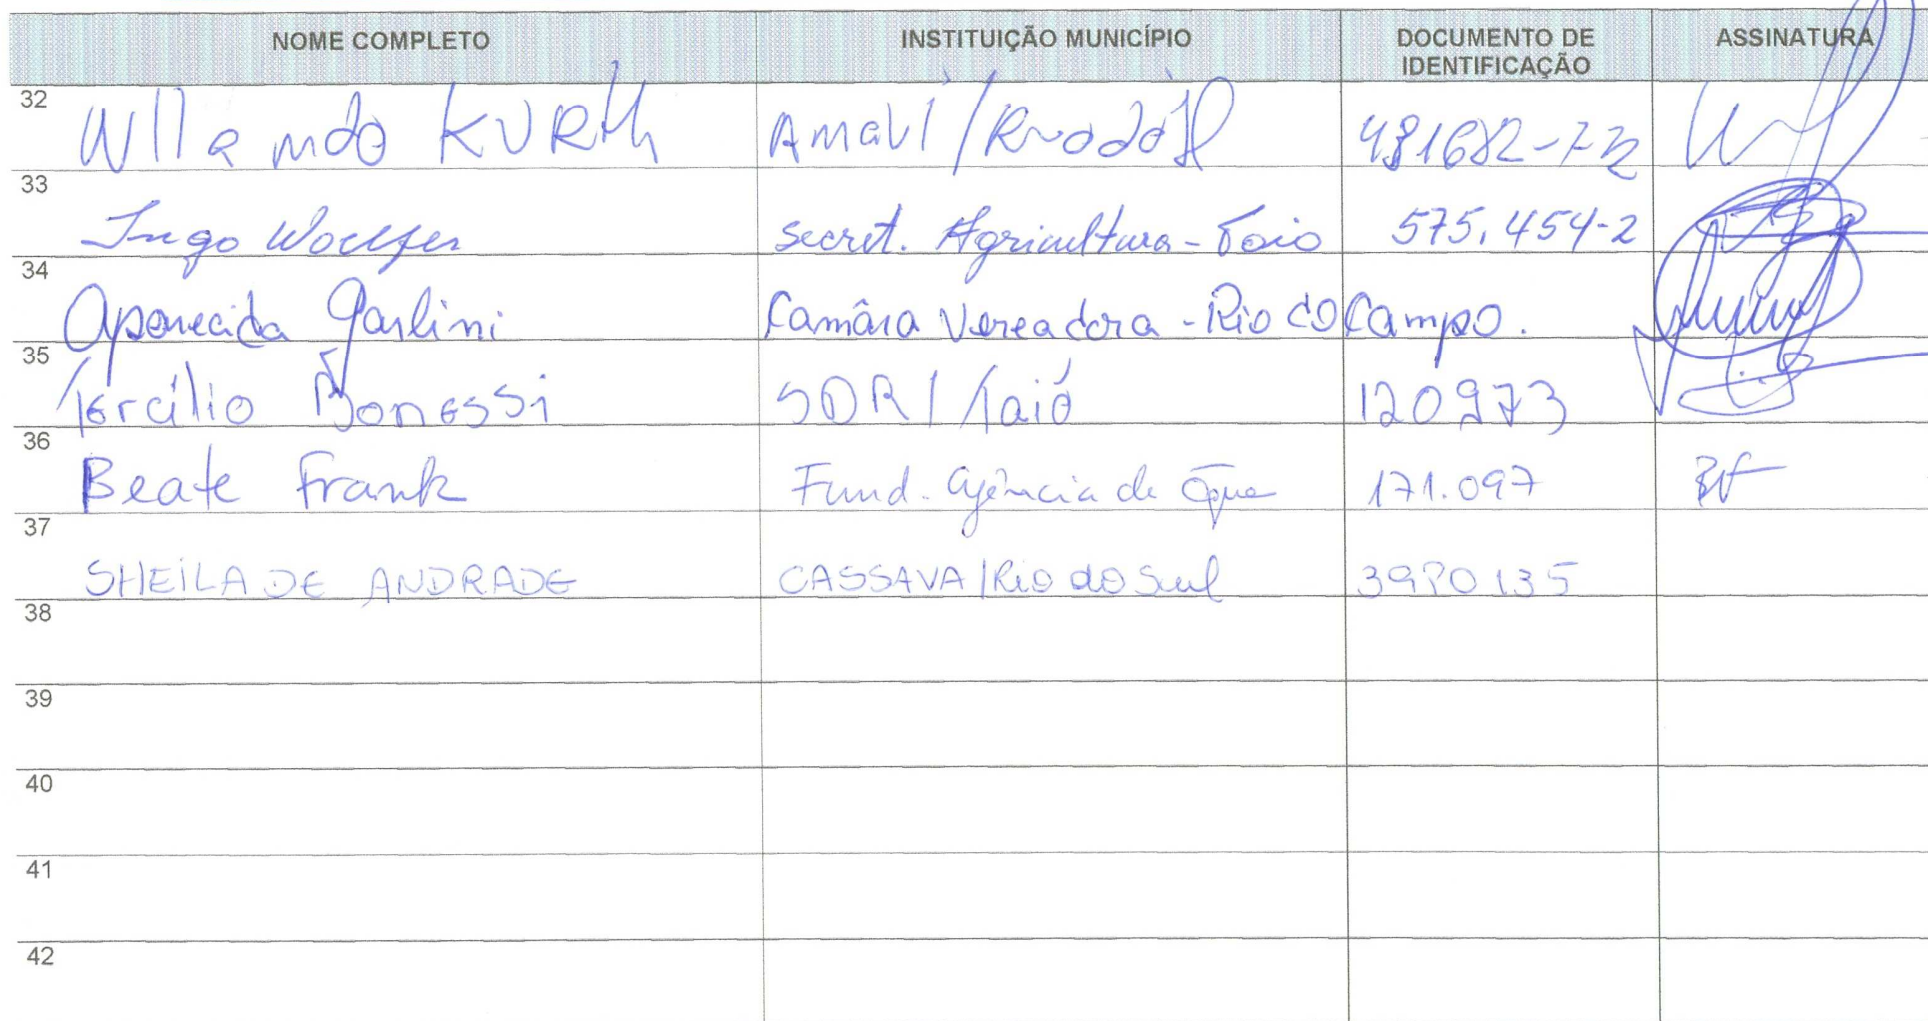 NOME COMPLETO INSTITUIÇÃO MUNICÍPIO DOCUMENTO DE IDENTIFICAÇÃO ASSINATURA
32 KURth Amavi
33 Ingo Secret. Agricultura - Taio 575.454-2
34 Aparecida Garlini Camâra Vereadora - Rio do Campo.
35 Tercílio Bonessi SDR / Taió 120973
36 Beate Frank Fund. Agência de Água 171.097 BF
37 SHEILA DE ANDRADE CASSAVA / Rio do Sul
38
39
40
41
42